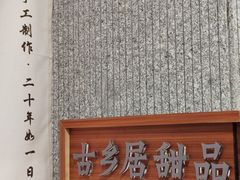 工制作·二十年如一日
古乡居甜品